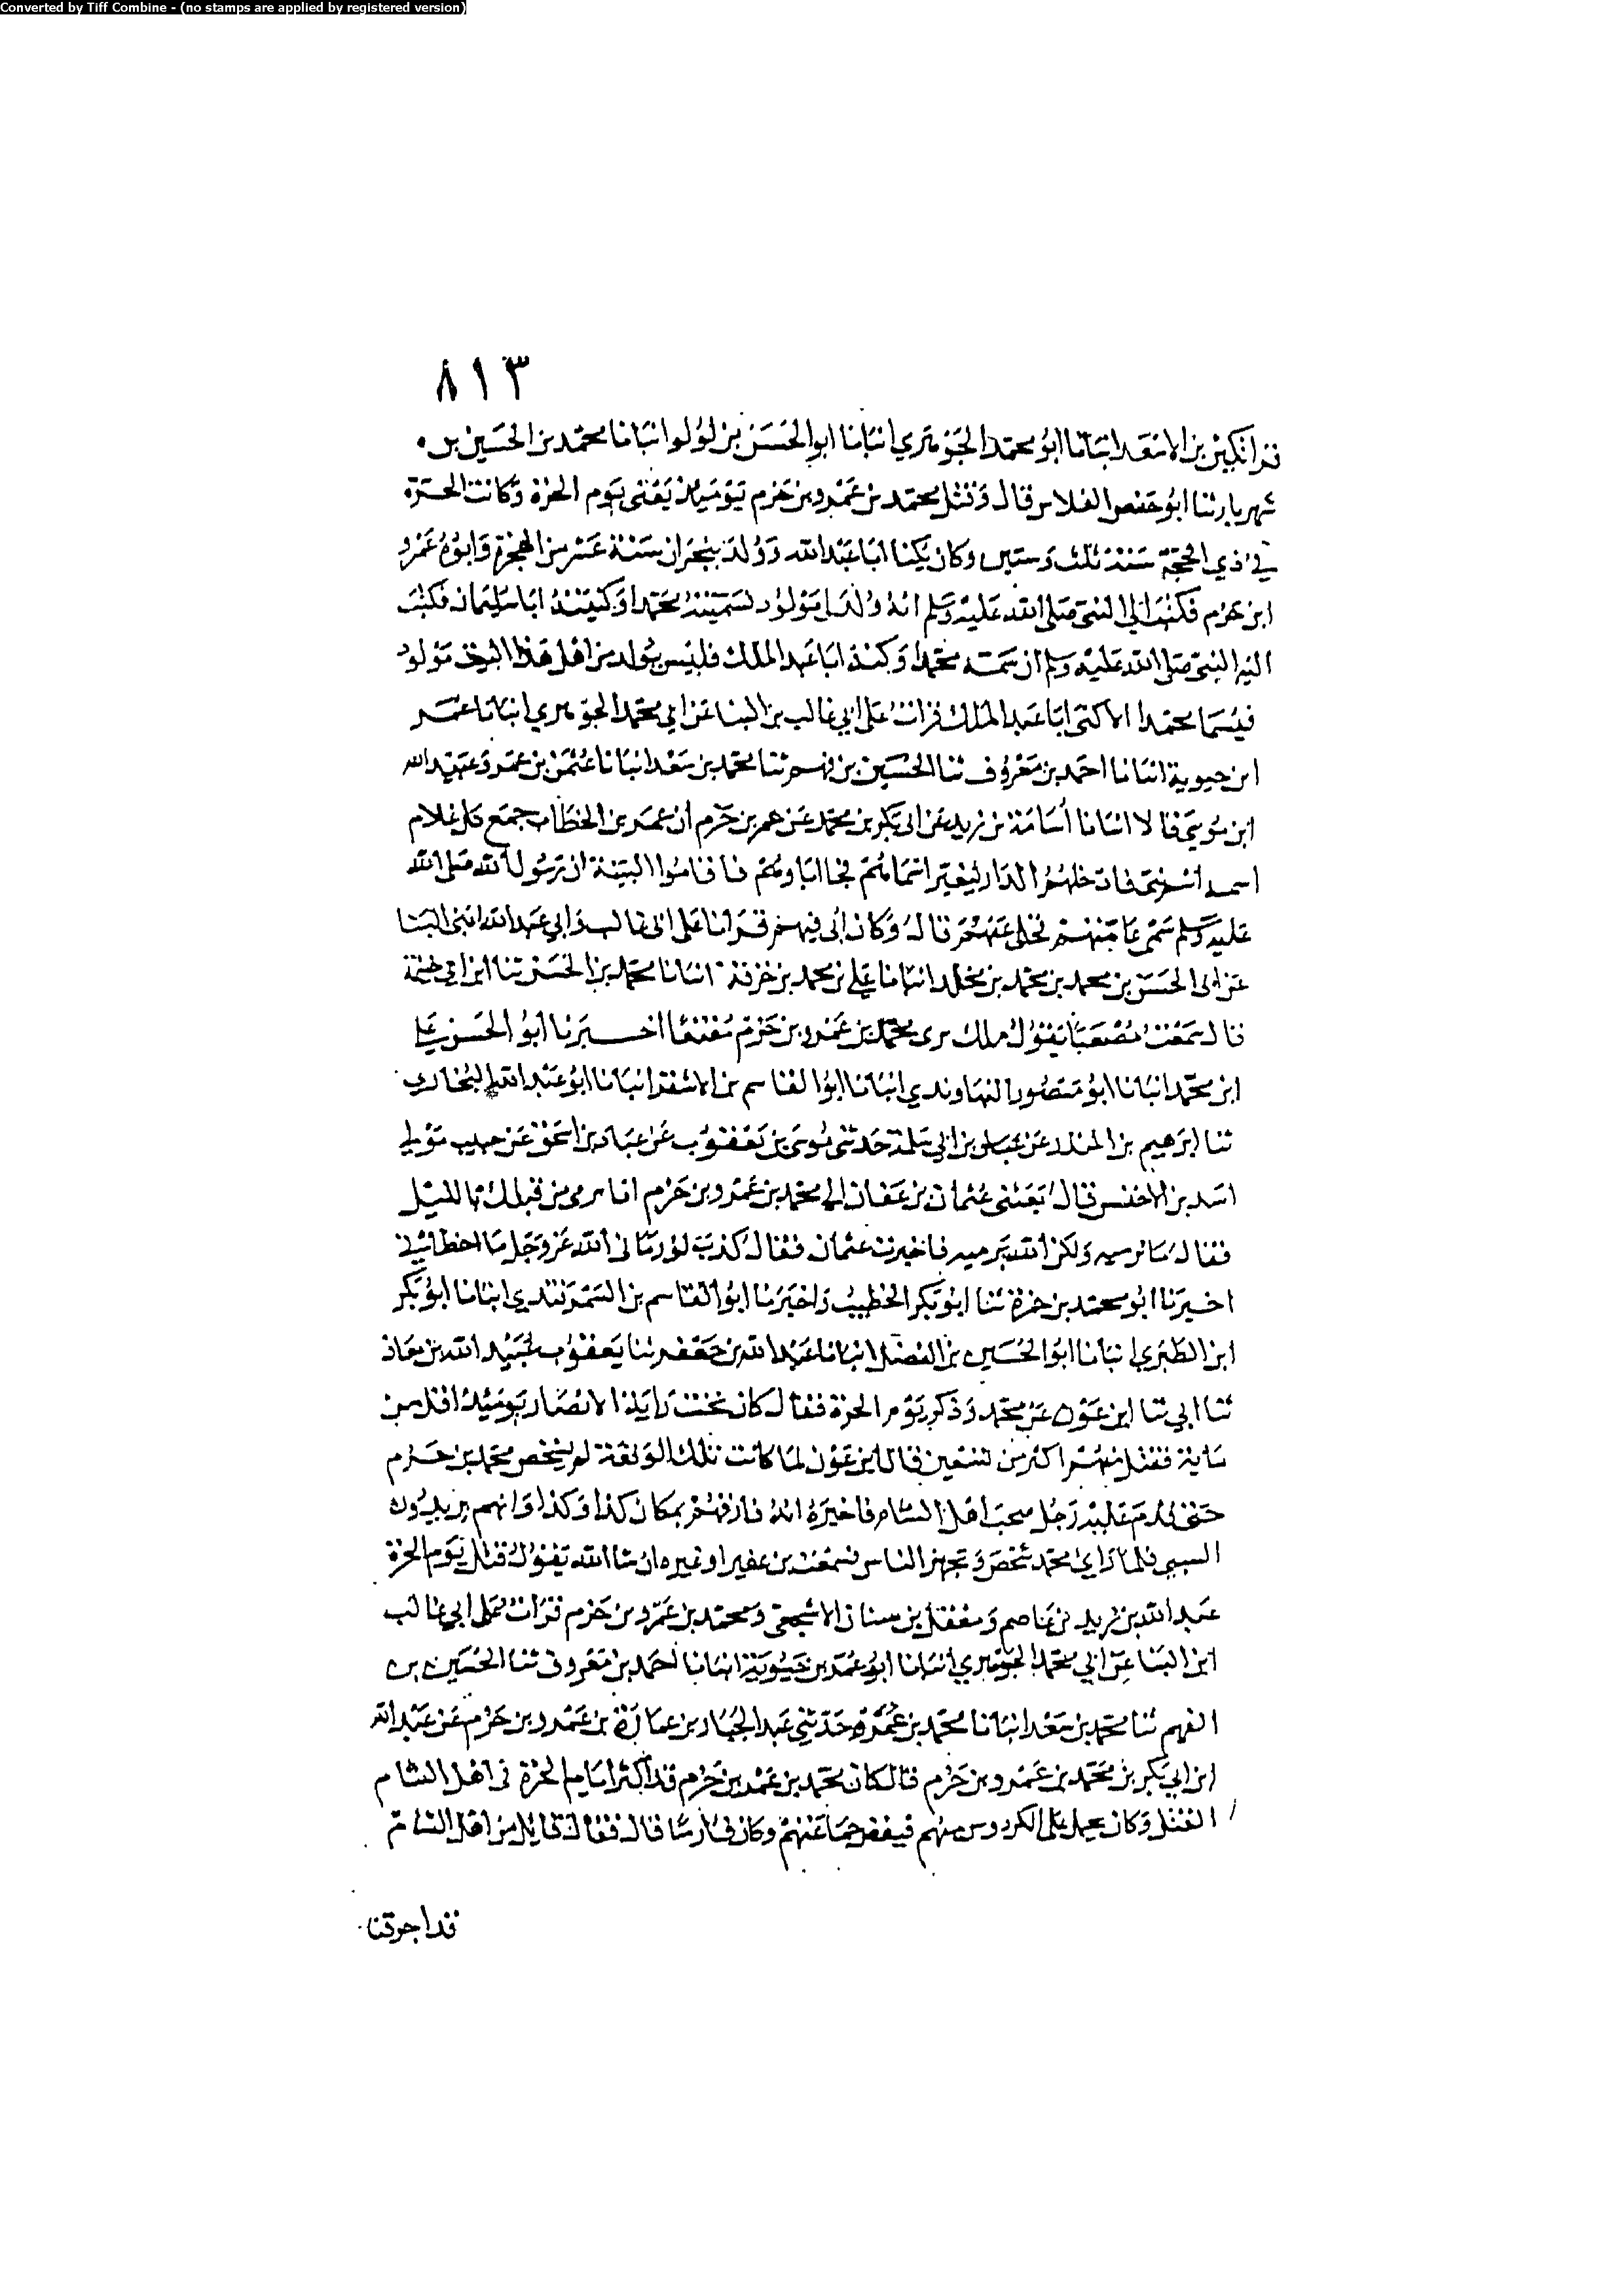 Converted by Tiff Combine - (no stamps are applied by registered version)
٨١٣
قراتكين بن الاسعد انبانا ابو محمد الجوهري انبانا ابو الحسن بن لولو انبانا محمد بن الحسين بن
شهريار ثنا ابو حفص الفلاس قال وقتل محمد بن عمرو بن حزم يومئذ يعني يوم الحرة وكانت الحرة
في ذي الحجة سنة ثلث وستين وكان يكنا ابا عبد الله وولد بنجران سنة عشر من الهجرة وابوه عمرو
ابن حزم فكتب الي النبي صلى الله عليه وسلم انه ولد لي مولود سميته محمدا وكنيته ابا سليمان فكتب
اليه النبي صلى الله عليه وسلم ان سمه محمدا وكنه ابا عبد الملك فليس يولد من اهل هذا البيت مولود
فيسما محمدا الا كنى ابا عبد الملك قرات على ابي غالب بن البنا عن ابي محمد الجوهري انبانا عمر
ابن حيوية انبانا احمد بن معروف ثنا الحسين بن فهم ثنا محمد بن سعد انبانا عثمن بن عمر وعبيد الله
ابن موسى قالا انبانا أسامة بن زيد عن ابي بكر بن محمد عن عمر بن حزم ان عمر بن الخطاب جمع كل غلام
اسمه اسم نبي فادخلهم الدار ليغير اسماهم فجا اباوهم فاقاموا البينة ان رسول الله صلى الله
عليه وسلم سمى عامتهم فخلى عنهم قال وكان ابي فيهم قرانا على ابي غالب وابي عبد الله ابني البنا
عن ابي الحسن بن محمد بن محمد بن مخلد انبانا علي بن محمد بن خزفة انبانا محمد بن الحسن ثنا ابن ابي خيثمة
قال سمعت مصعبا يقول ملك يرى محمد بن عمرو بن حزم مقنعا اخبرنا ابو الحسن علي
ابن محمد انبانا ابو منصور النهاوندي انبانا ابو القاسم بن الاشقر انبانا ابو عبد الله البخاري
ثنا ابرهيم بن المنذر عن عباس بن ابي سلمة حدثني موسى بن يعقوب عن عباد بن اسحق عن مولى
اسد بن الاخنس قال بعثني عثمان بن عفان الي محمد بن عمرو بن حزم انا نرمى من قبلك بالليل
فقال ما نرميه ولكن الله يرميه فاخبرت عثمان فقال كذب لو رماني الله عز وجل ما اخطاني
اخبرنا ابو محمد بن حمزة ثنا ابو بكر الخطيب واخبرنا ابو القاسم بن السمرقندي انبانا ابو بكر
ابن الطبري انبانا ابو الحسين بن الفضل انبانا عبد الله بن جعفر ثنا يعقوب عبيد الله بن معاذ
ثنا ابي ثنا ابن عون عن محمد وذكر يوم الحرة فقال كان تحت راية الانصار يومئذ اقل من
ماية فقتل منهم اكثر من تسعين قال ابن عون لما كانت تلك الوقعة لم يشخص محمد بن حزم
حتى قدم عليه رجل صحب اهل الشام فاخبره انه فارقهم بمكان كذا وكذا وانهم يريدون
السبي فلما راي محمد شخص وتجهز الناس فسمعت بن عفير او غيره ان شا الله يقول قتل يوم الحرة
عبد الله بن زيد بن عاصم ومعقل بن سنان الاشجعي ومحمد بن عمرو بن حزم قرات على ابي غالب
ابن البنا عن ابي محمد الجوهري انبانا ابو عمر بن حيوية انبانا احمد بن معروف ثنا الحسين بن
الفهم ثنا محمد بن سعد انبانا محمد بن عمر حدثني عبد الجبار بن عمارة بن عمرو بن حزم عن عبد الله
ابن ابي بكر بن محمد بن عمرو بن حزم قال كان محمد بن عمرو بن حزم قد اكثر ايام الحرة في اهل الشام
القتل وكان يحمل على الكردوس منهم فيفض جماعتهم وكان فارسا قال فقال قايل من اهل الشام
قد احرقنا